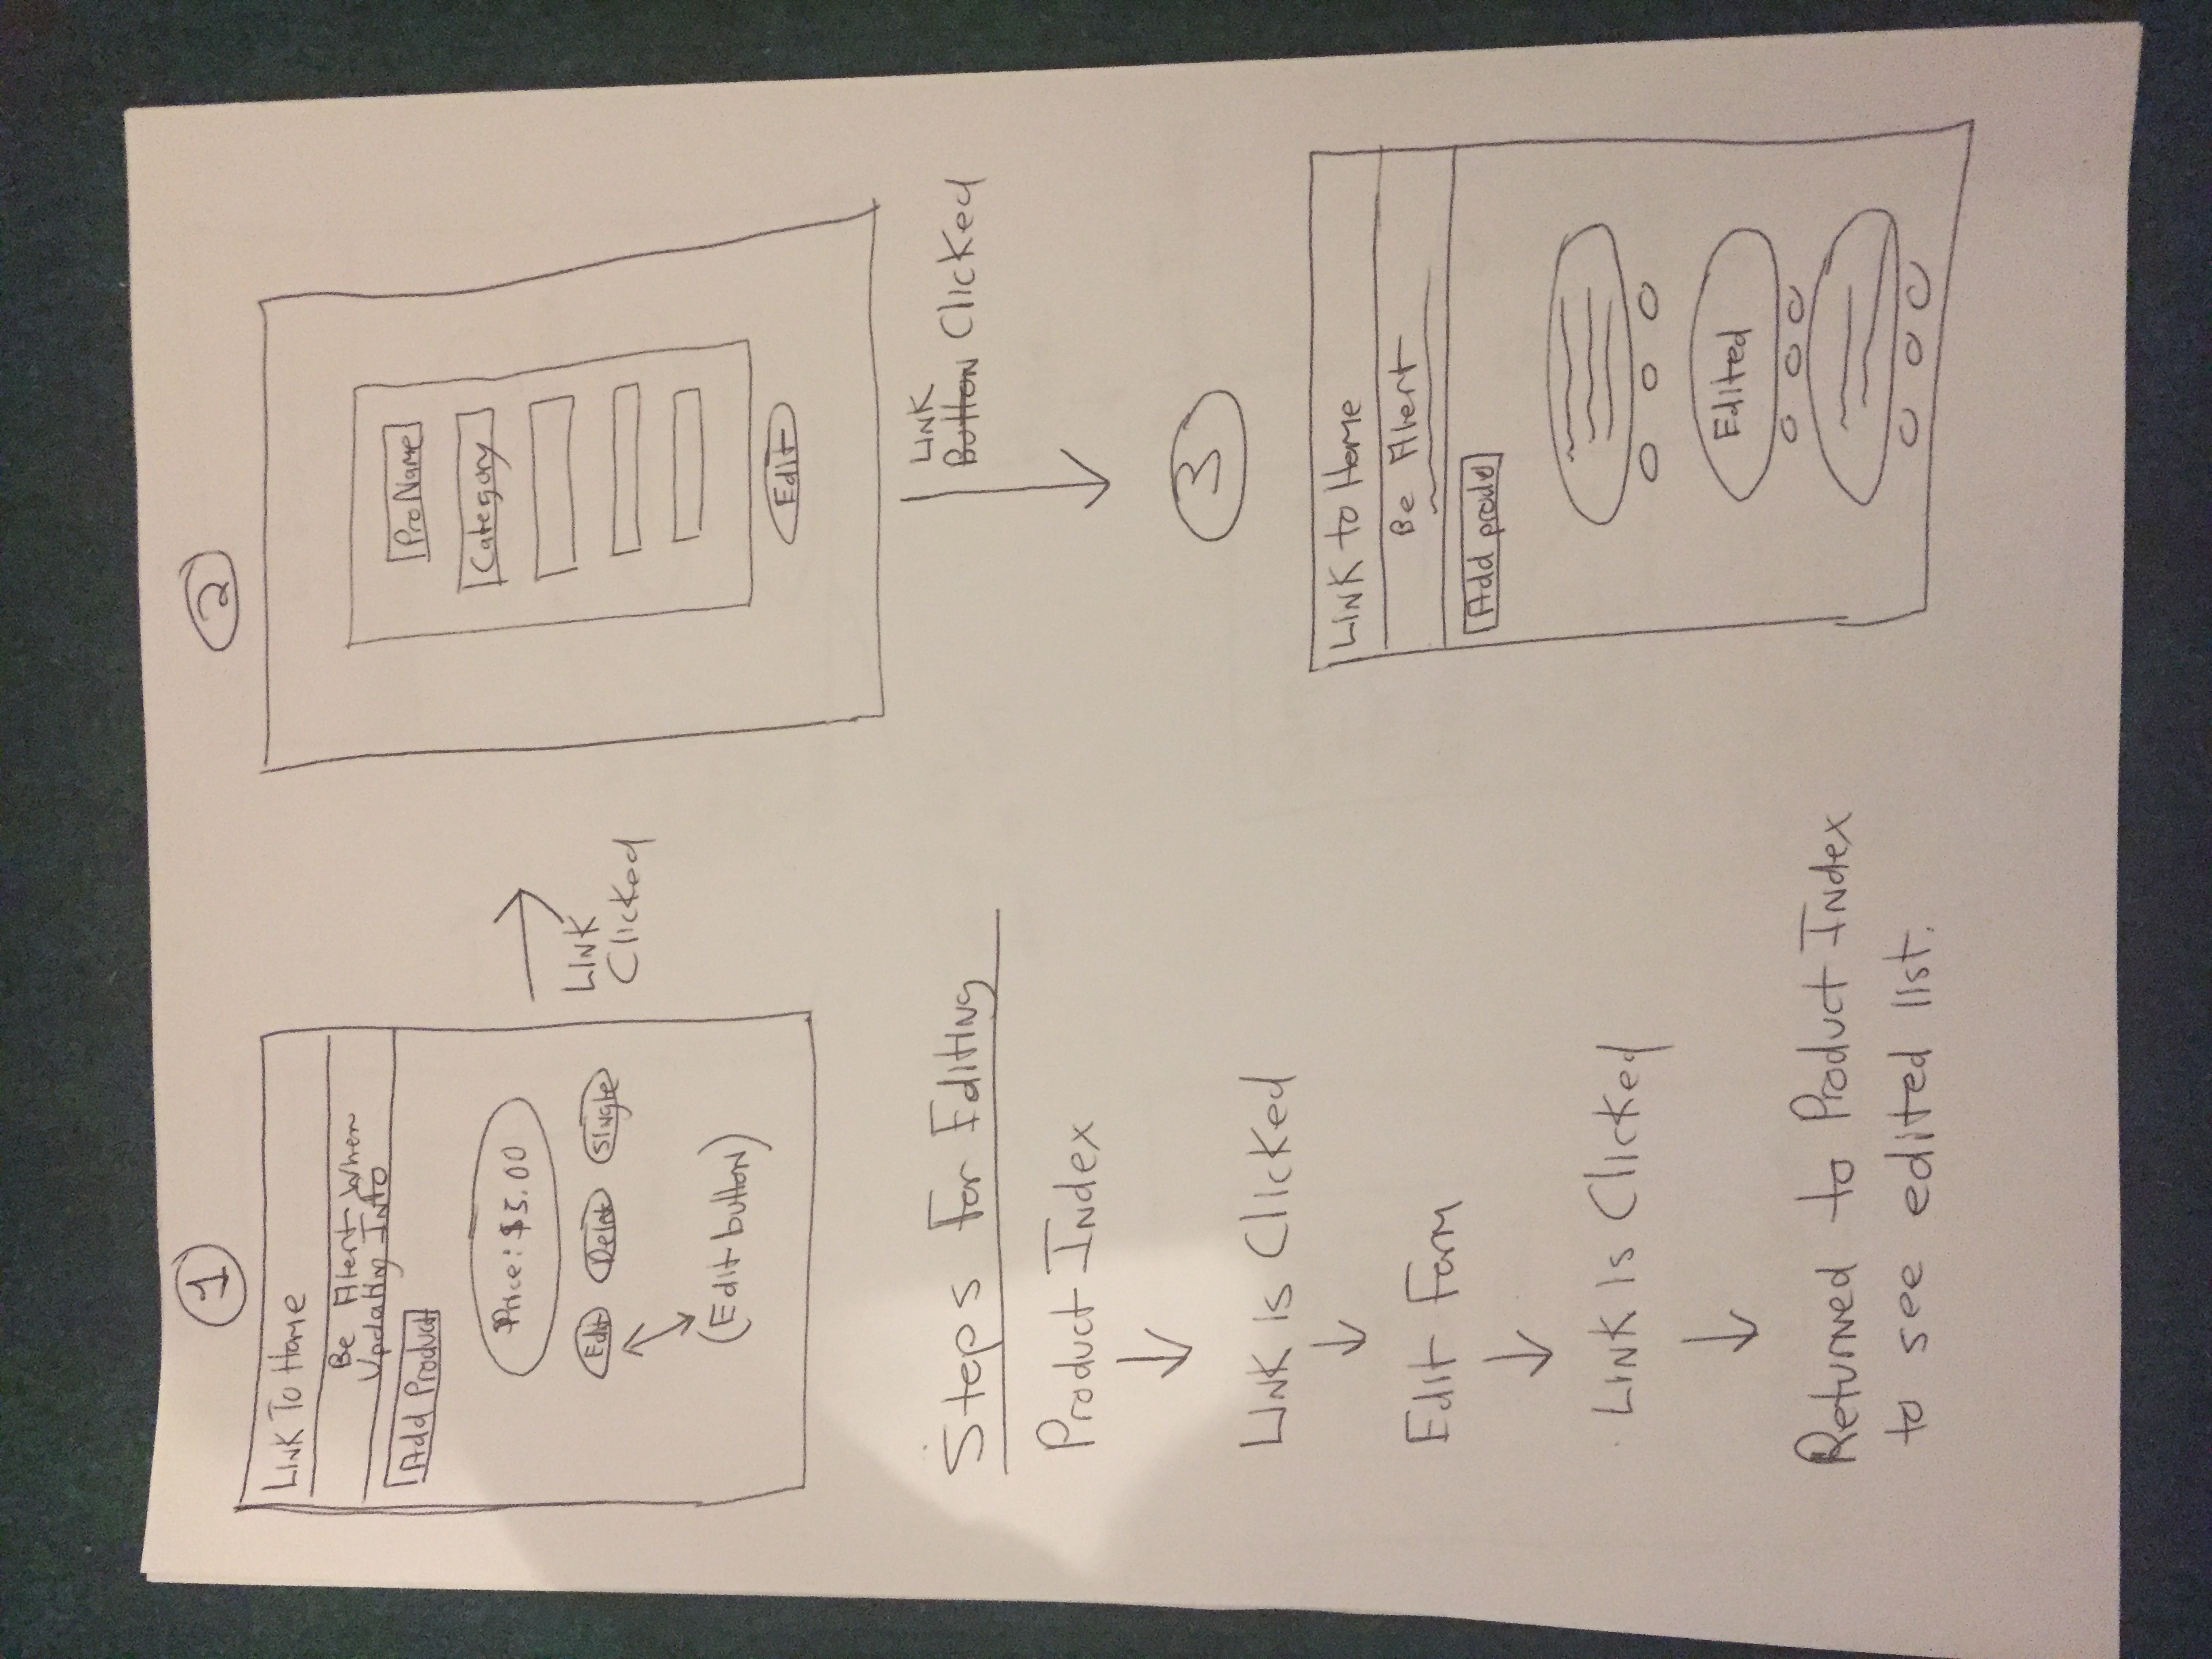 1
Link To Home
Be Alert When
Updating Info
Add Product
Price: $5.00
Edit Delet Single
(Edit button)
Link
Clicked
2
Pro Name
Category
Edit
Link
Button Clicked
3
Link to Home
Be Alert
Add produ
Edited
Steps For Editing
Product Index
Link Is Clicked
Edit Form
Link Is Clicked
Returned to Product Index
to see edited list.